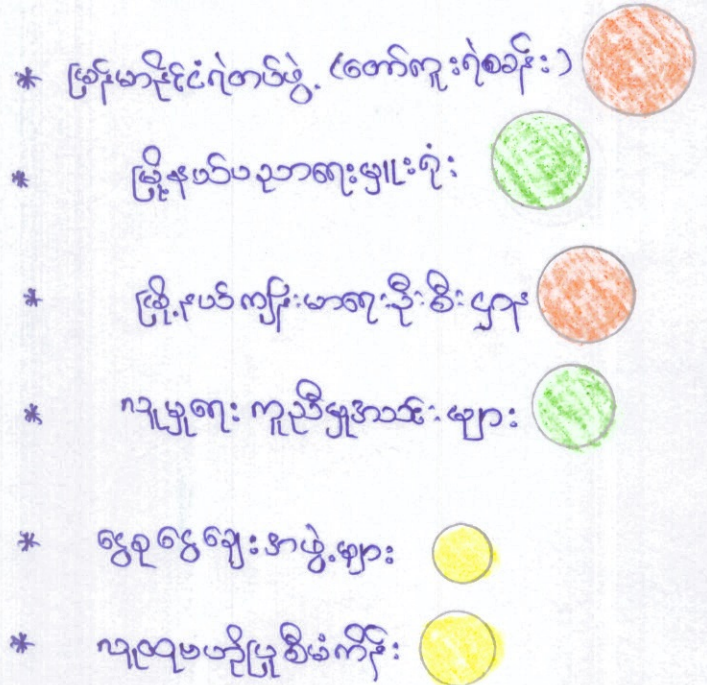 * မြန်မာနိုင်ငံရဲတပ်ဖွဲ့ (တော်ကူးရဲစခန်း)
* မြို့နယ်ပညာရေးမှူးရုံး
* မြို့နယ်ကျန်းမာရေးဦးစီးဌာန
* လူမှုရေး ကူညီမှုအသင်းများ
* ငွေစုငွေချေးအဖွဲ့များ
* လူထုဗဟိုပြုစီမံကိန်း